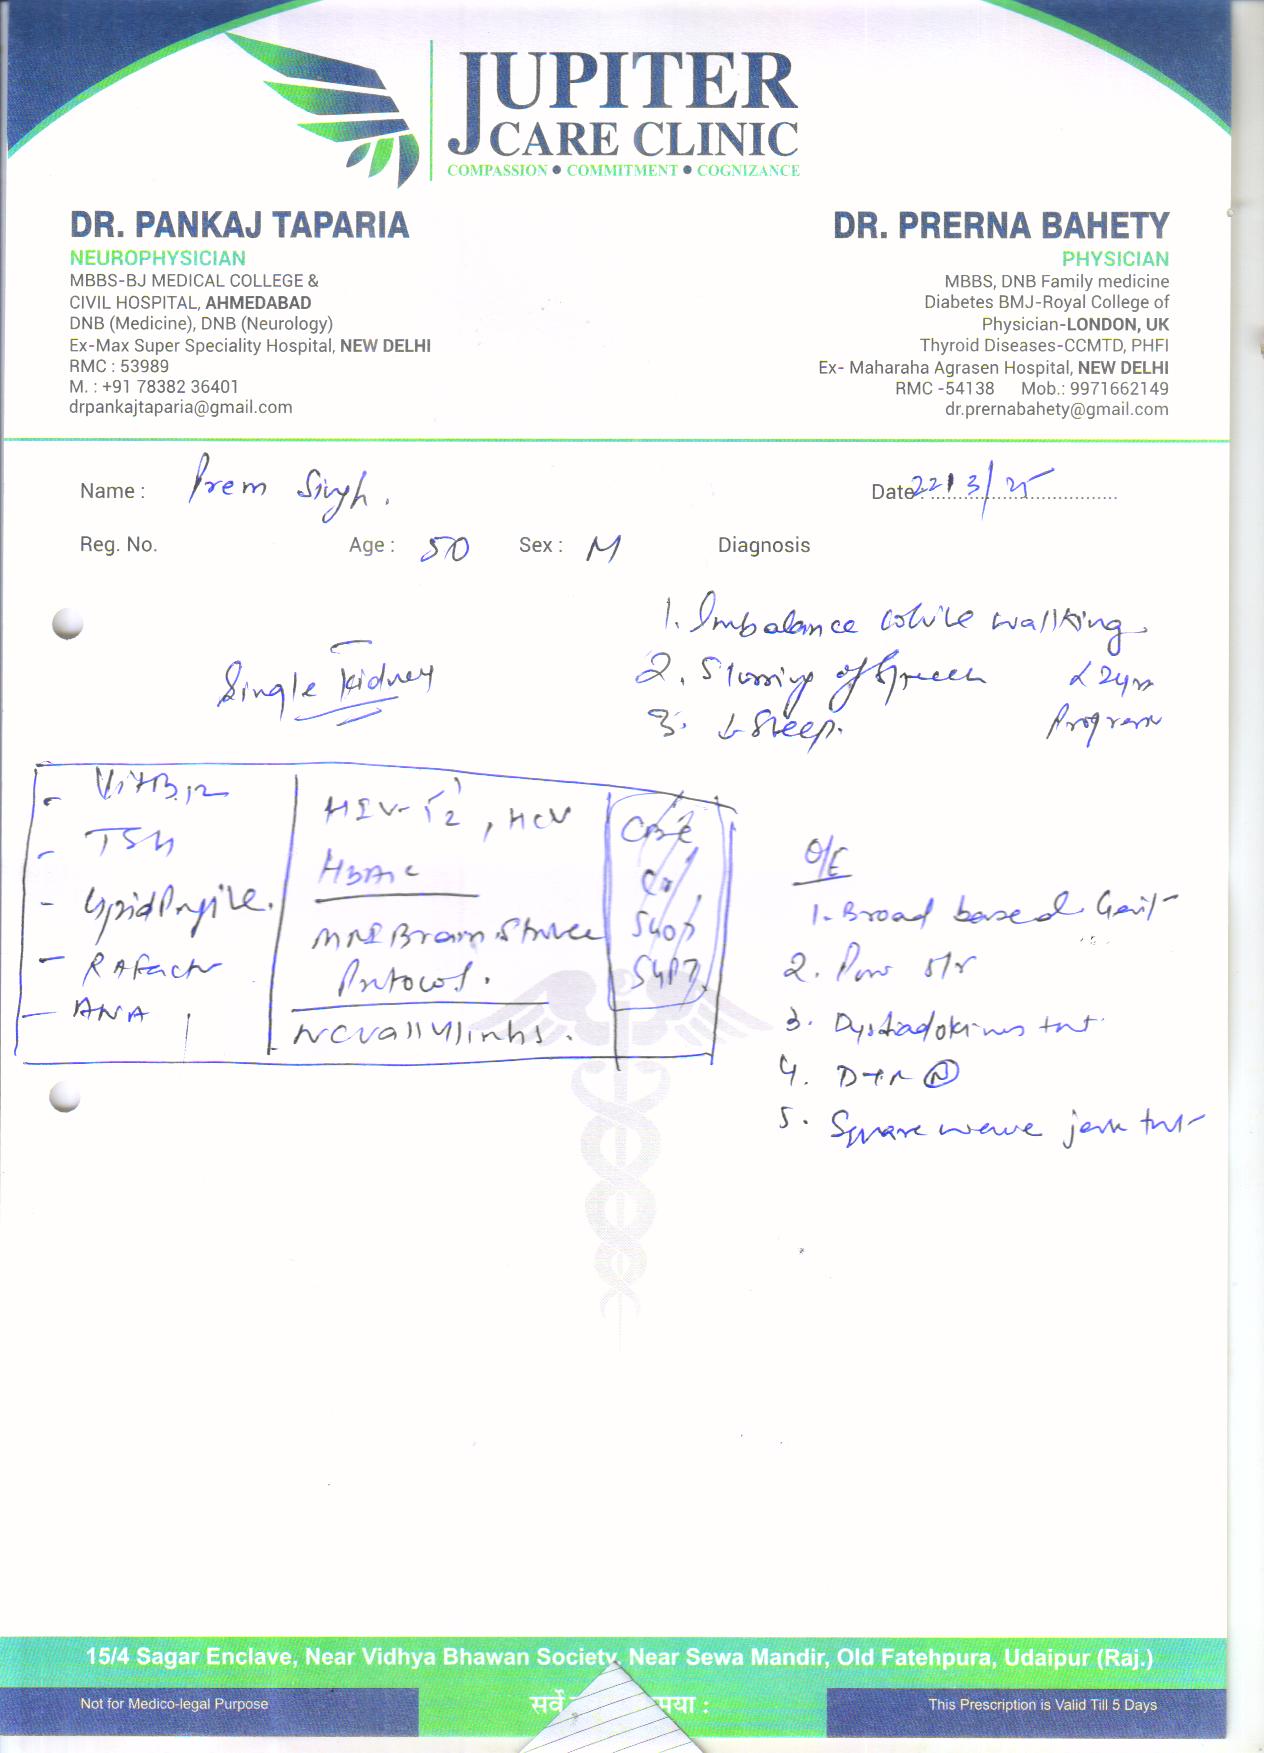 JUPITER
CARE CLINIC
COMPASSION ● COMMITMENT ● COGNIZANCE
DR. PANKAJ TAPARIA
NEUROPHYSICIAN
MBBS-BJ MEDICAL COLLEGE &
CIVIL HOSPITAL, AHMEDABAD
DNB (Medicine), DNB (Neurology)
Ex-Max Super Speciality Hospital, NEW DELHI
RMC : 53989
M. : +91 78382 36401
drpankajtaparia@gmail.com
DR. PRERNA BAHETY
PHYSICIAN
MBBS, DNB Family medicine
Diabetes BMJ-Royal College of
Physician-LONDON, UK
Thyroid Diseases-CCMTD, PHFI
Ex- Maharaha Agrasen Hospital, NEW DELHI
RMC -54138 Mob.: 9971662149
dr.prernabahety@gmail.com
Name : Prem Singh. Date : 22/3/25
Reg. No. Age : 50 Sex : M Diagnosis
Single Kidney
1. Imbalance while wallking
2. Slurring of Speech
3. ↓ Sleep.
- Vit B12
- TSH
- Lipid Profile.
- RA Factor
- ANA
HIV, HCV
HBA1C
MRI Brain
Protocol.
NCV all 4 limbs.
CBC
Cr
SGOT
SGPT
O/E
1. Broad based Gait
2. Power 5/5
3.
4. DTR N
5. Square wave jerk
15/4 Sagar Enclave, Near Vidhya Bhawan Society, Near Sewa Mandir, Old Fatehpura, Udaipur (Raj.)
Not for Medico-legal Purpose
सर्वे
This Prescription is Valid Till 5 Days